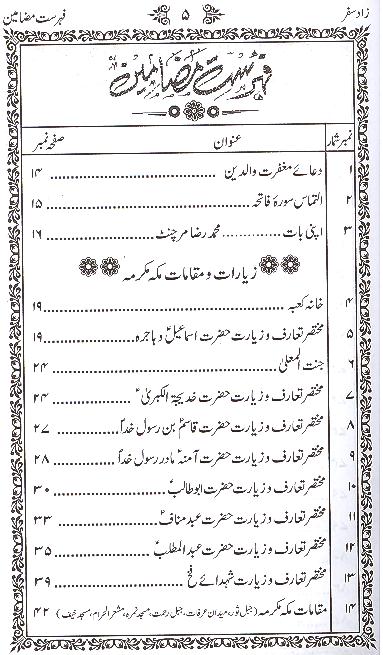 زاد سفر ۵ فہرست مضامین
فہرست مضامین
نمبر شمار عنوان صفحہ نمبر
۱ دعائے مغفرت والدین ........ ۱۴
۲ التماس سورۂ فاتحہ ........ ۱۵
۳ اپنی بات ............ محمد رضا مرچنٹ ........ ۱۶
زیارات و مقامات مکہ مکرمہ
۴ خانہ کعبہ ........ ۱۹
۵ مختصر تعارف و زیارت حضرت اسماعیلؑ و ہاجرہ ........ ۱۹
۶ جنت المعلیٰ ........ ۲۴
۷ مختصر تعارف و زیارت حضرت خدیجۃ الکبریٰ ؑ ........ ۲۴
۸ مختصر تعارف و زیارت حضرت قاسمؑ بن رسول خداؐ ........ ۲۷
۹ مختصر تعارف و زیارت حضرت آمنہؑ مادر رسول خداؐ ........ ۲۸
۱۰ مختصر تعارف و زیارت حضرت ابوطالبؑ ........ ۳۰
۱۱ مختصر تعارف و زیارت حضرت عبد منافؑ ........ ۳۳
۱۲ مختصر تعارف و زیارت حضرت عبدالمطلبؑ ........ ۳۵
۱۳ مختصر تعارف و زیارت شہدائے فخ ........ ۳۹
۱۴ مقامات مکہ مکرمہ (جبل ثور، میدان عرفات، جبل رحمت، مسجد نمرہ، مشعر الحرام، مسجد خیف) ۴۲